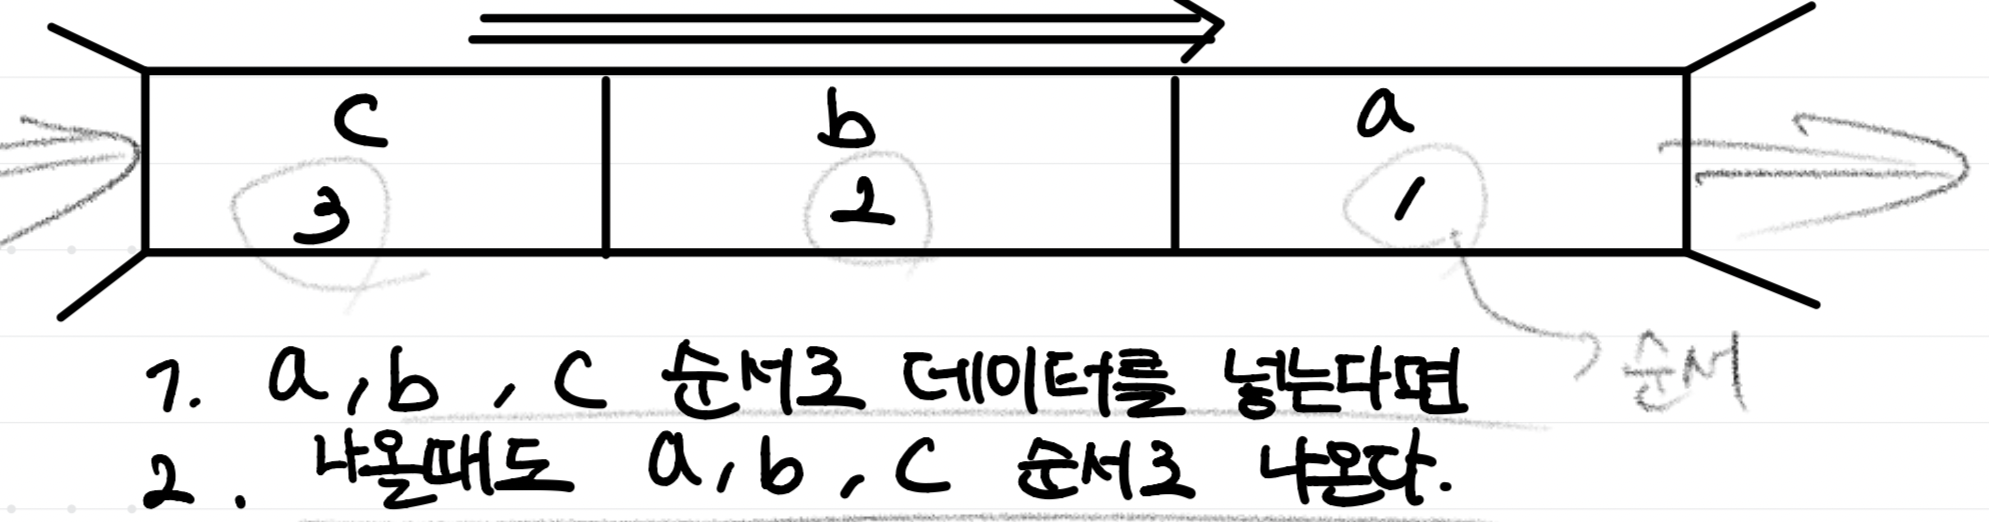 c b a
3 2 1
순서
1. a, b, c 순서로 데이터를 넣는다면
2. 나올때도 a, b, c 순서로 나온다.